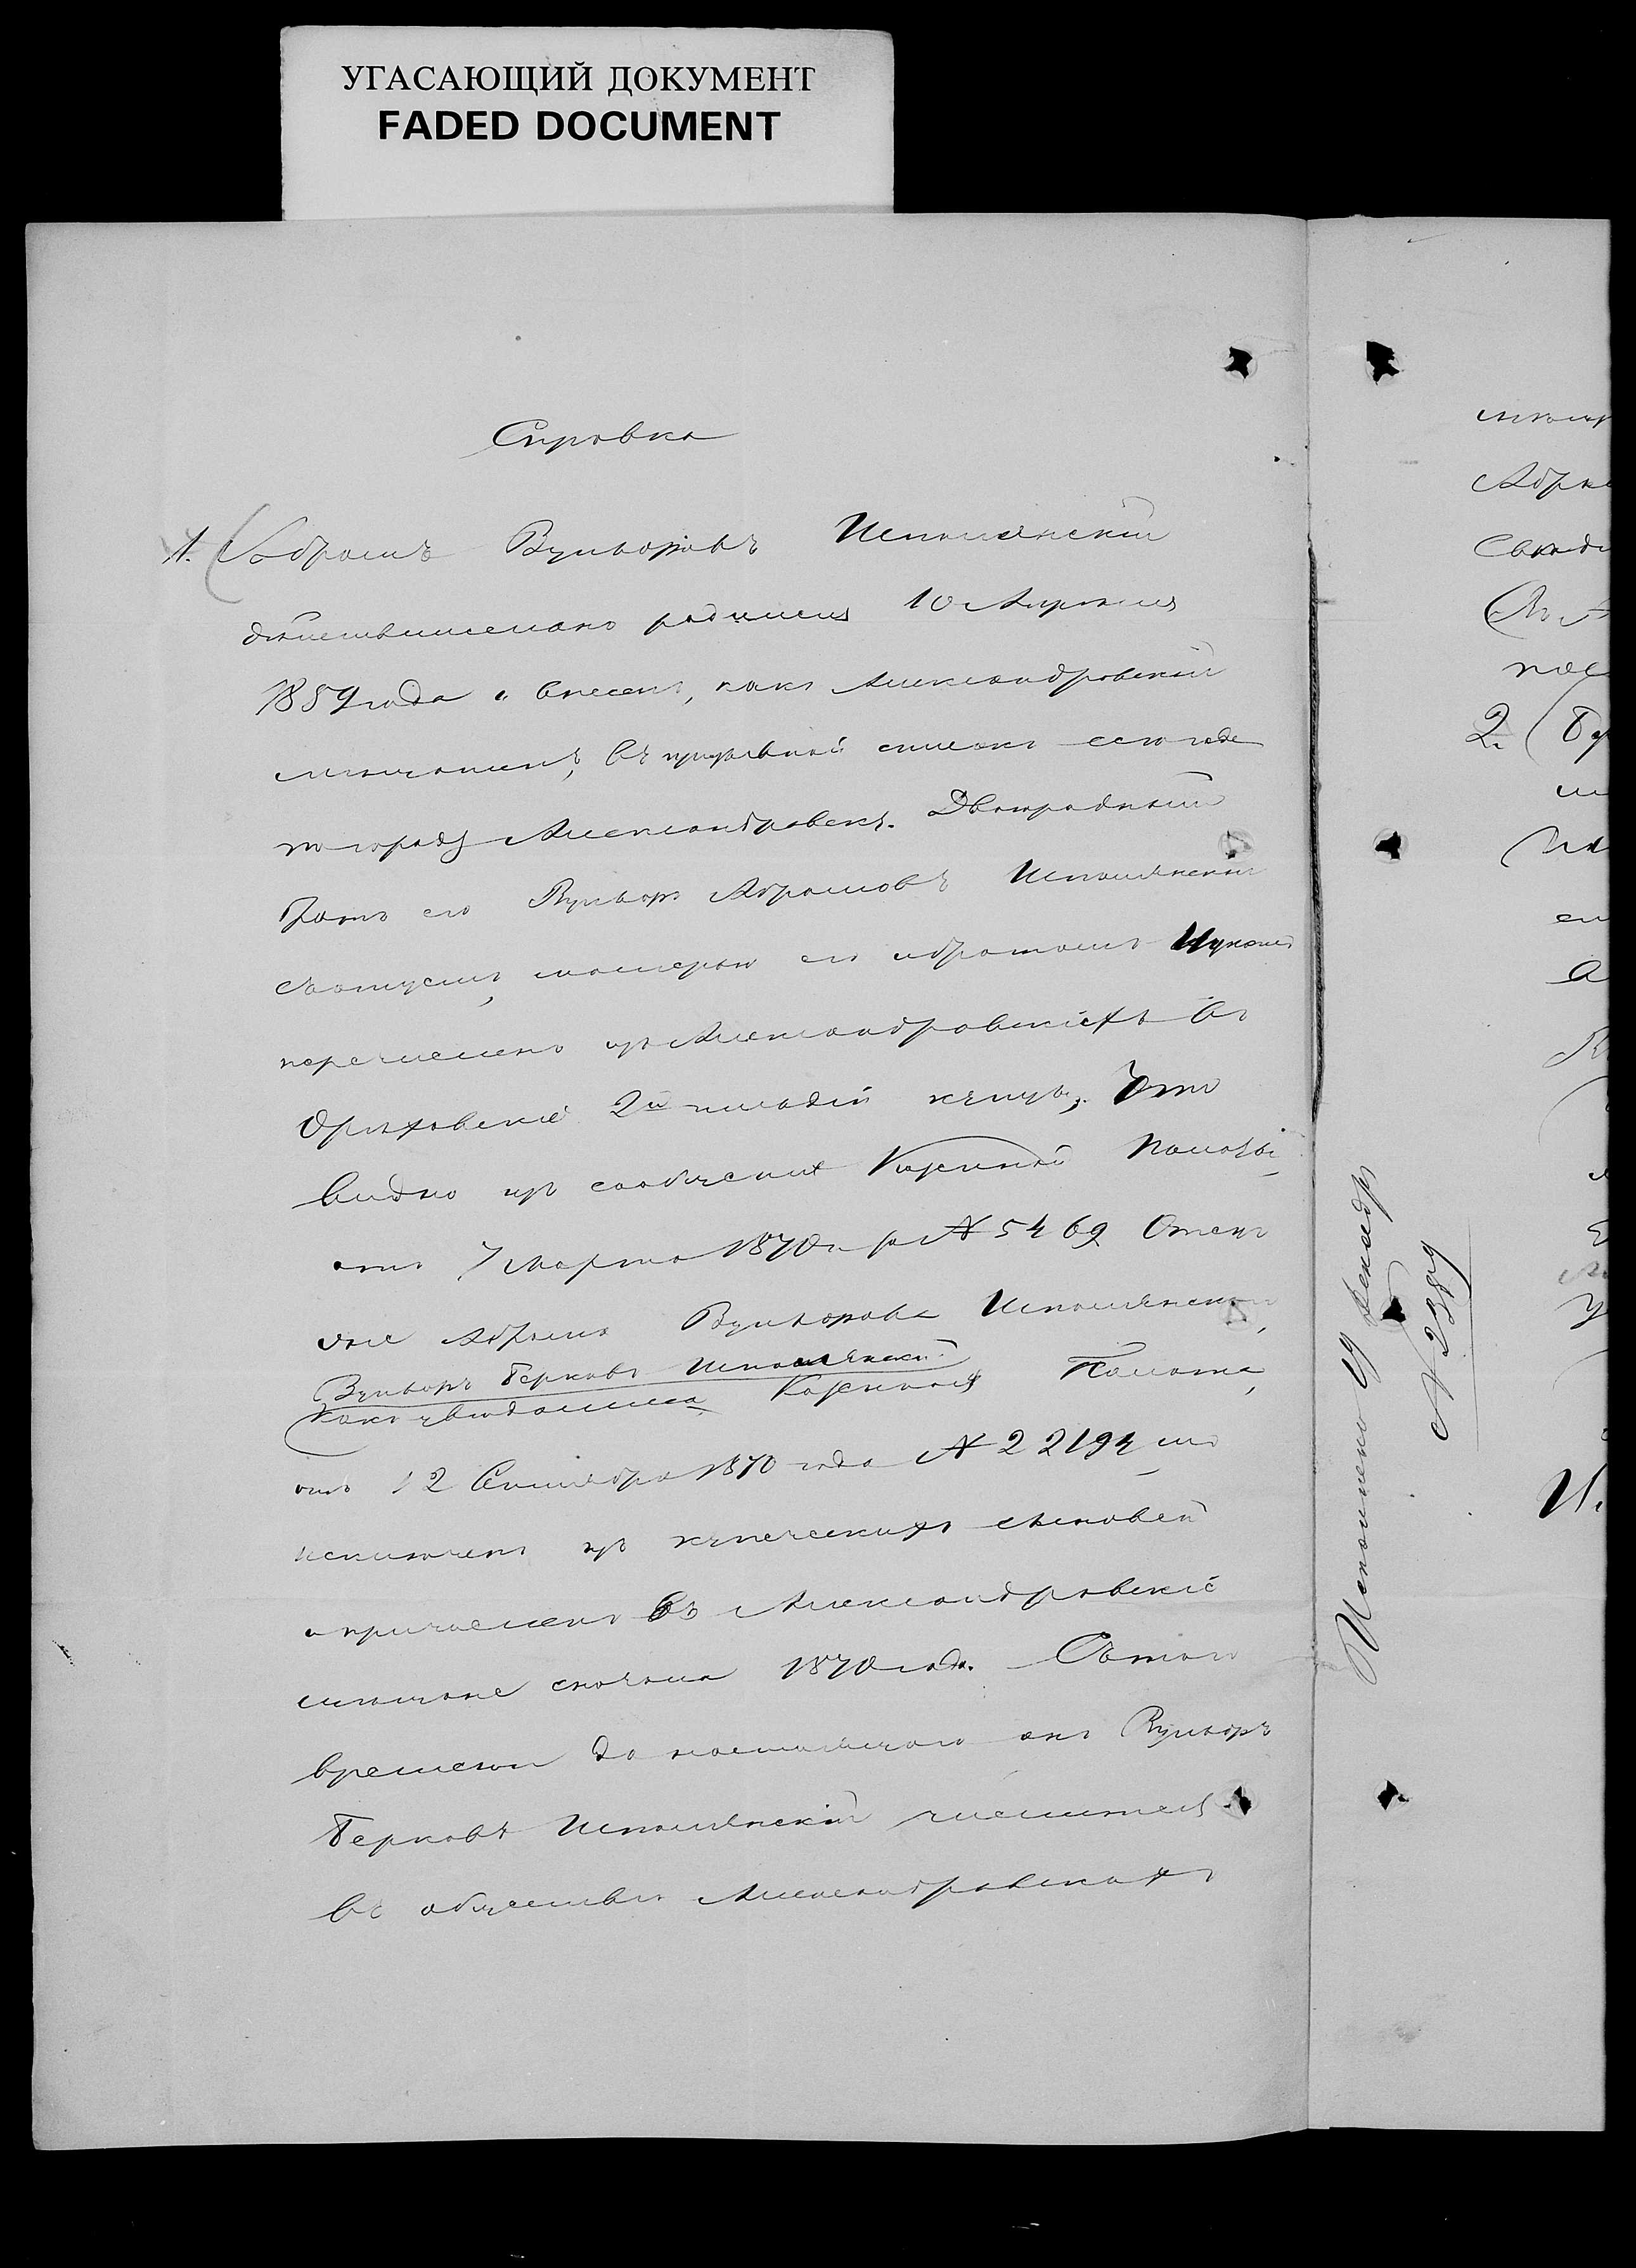 УГАСАЮЩИЙ ДОКУМЕНТ
FADED DOCUMENT
Справка
1. Абрамъ Вульфовъ Исполянскій
действительно родился 10 Апрѣля
1859 года и внесенъ, какъ Александровскій
мѣщанинъ, въ призывной списокъ сего года
по городу Александровску. Двоюродный
братъ его Вульфъ Абрамовъ Исполянскій
съ отцемъ, матерью его и братомъ
перечисленъ изъ Александровскихъ въ
Орѣховскіе 2й гильдіи купцы. Это
видно изъ сообщенія Казенной Палаты
отъ 7 Марта 1870 г. за № 5469 Отецъ
же Абрама Вульфова Исполянскаго,
Вульфъ Берковъ Исполянскій
какъ увѣдомила Казенная Палата,
отъ 12 Сентября 1870 года № 22194
исключенъ изъ купеческихъ сыновей
и причисленъ въ Александровскіе
мѣщане сначала 1870 года. Съ того
времени до настоящаго онъ Вульфъ
Берковъ Исполянскій числится
въ обществѣ Александровскихъ
Исполнено 19 декабр
№ 2389
2.